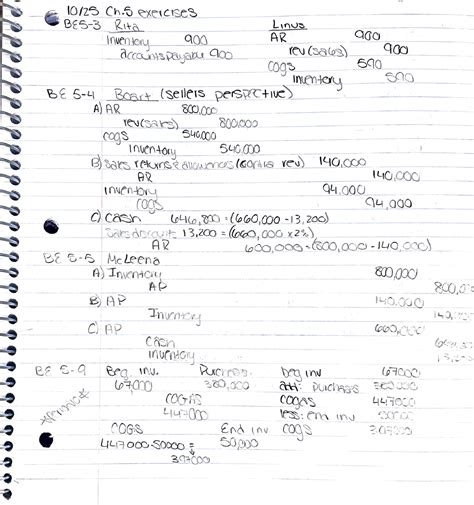 10/25 Ch.5 exercises
BE5-3 Rita Linus
Inventory 900 AR 900
accounts payable 900 rev(sales) 900
COGS 590
Inventory 590
BE 5-4 Boart (sellers perspective)
A) AR 800,000
rev(sales) 800,000
COGS 540,000
Inventory 540,000
B) Sales returns & allowances (contra rev) 140,000
AR 140,000
inventory 94,000
COGS 94,000
C) Cash 646,800 = (660,000 - 13,200)
Sales discounts 13,200 = (660,000 x 2%)
AR 600,000 = (800,000 - 140,000)
BE 5-5 McLeena
A) Inventory 800,000
AP
B) AP 140,000
Inventory
C) AP 660,000
Cash
inventory
BE 5-9 Beg. inv. Purchases beg inv 67000
67,000 380,000 add: Purchases 380000
COGAS COGAS 447000
447000 less: end inv 50000
COGS End inv COGS
447000-50000 = 50,000
397000
*periodic*